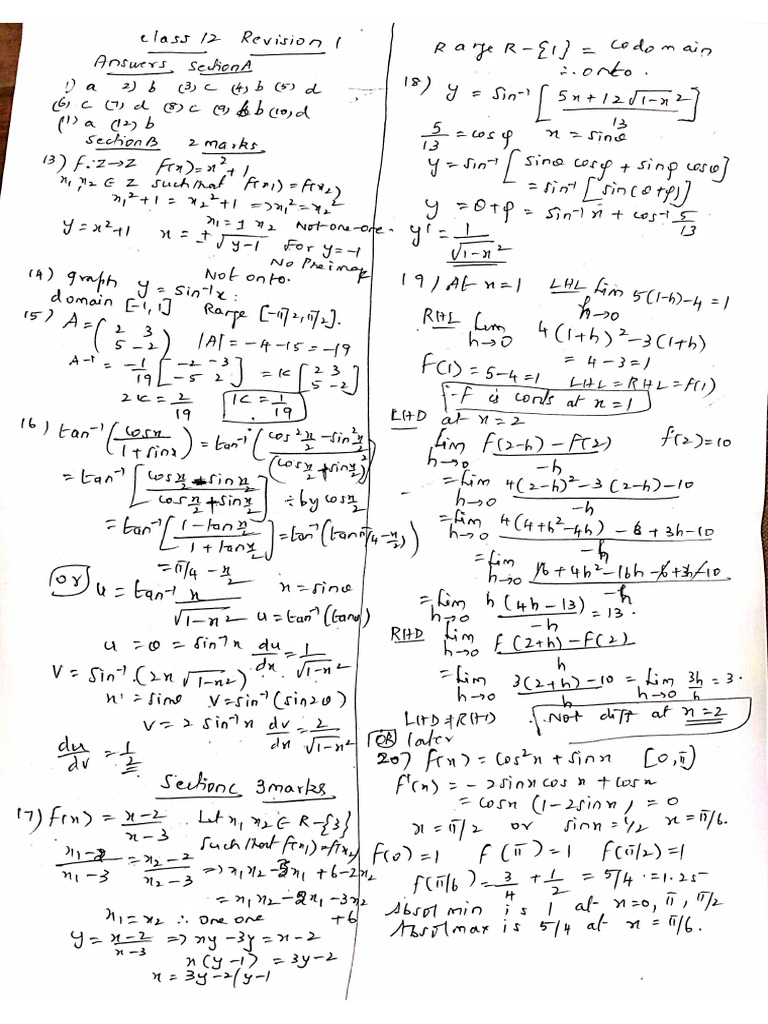 class 12 Revision 1
Answers Section A
1) a 2) b (3) c (4) b (5) d
(6) c (7) d (8) c (9) b (10) d
(11) a (12) b
Section B 2 marks
13) f: Z→Z f(x)=x²+1
x₁, x₂ ∈ Z such that f(x₁)=f(x₂)
x₁²+1 = x₂²+1 ⇒ x₁²=x₂²
x₁=± x₂ Not one-one.
y=x²+1 x=±√(y-1) For y=-1
No Preimage
Not onto.
14) graph y=sin⁻¹x:
domain [-1,1] Range [-π/2,π/2].
15) A=(2 3
5 -2) |A|=-4-15=-19
A⁻¹=-1/19[-2 -3
-5 2]=K[2 3
5 -2]
2K=2/19 K=1/19
16) tan⁻¹(cosx/(1+sinx))=tan⁻¹((cos²x/2-sin²x/2)/(cosx/2+sinx/2)²)
=tan⁻¹[(cosx/2-sinx/2)/(cosx/2+sinx/2)] ÷by cosx/2
=tan⁻¹[(1-tanx/2)/(1+tanx/2)]=tan⁻¹(tan π/4-x/2)
=π/4-x/2
or u=tan⁻¹ x/√(1-x²) x=sinθ
u=tan⁻¹(tanθ)
u=θ=sin⁻¹x du/dx=1/√(1-x²)
V=sin⁻¹(2x√(1-x²))
x=sinθ V=sin⁻¹(sin2θ)
V=2 sin⁻¹x dv/dx=2/√(1-x²)
du/dv=1/2
Section C 3 marks
17) f(x)=(x-2)/(x-3) Let x₁, x₂ ∈ R-{3}
such that f(x₁)=f(x₂)
(x₁-2)/(x₁-3)=(x₂-2)/(x₂-3) ⇒x₁x₂-3x₁+6-2x₂
=x₁x₂-2x₁-3x₂
+6
x₁=x₂ ∴ one one
y=(x-2)/(x-3) ⇒ xy-3y=x-2
x(y-1)=3y-2
x=3y-2/y-1
Range R-{1} = codomain
∴ onto.
18) y=sin⁻¹[(5x+12√(1-x²))/13]
5/13=cosφ x=sinθ
y=sin⁻¹[sinθ cosφ+sinφ cosθ]
=sin⁻¹[sin(θ+φ)]
y=θ+φ=sin⁻¹x+cos⁻¹5/13
y'=1/√(1-x²)
19) At x=1 LHL lim h→0 5(1-h)-4=1
RHL lim h→0 4(1+h)²-3(1+h)
=4-3=1
f(1)=5-4=1 LHL=RHL=f(1)
∴f is conts at x=1
LHD at x=2
lim h→0 (f(2-h)-f(2))/-h f(2)=10
=lim h→0 (4(2-h)²-3(2-h)-10)/-h
=lim h→0 (4(4+h²-4h)-6+3h-10)/-h
=lim h→0 (16+4h²-16h-6+3h-10)/-h
=lim h→0 h(4h-13)/-h=13.
RHD lim h→0 (f(2+h)-f(2))/h
=lim h→0 (3(2+h)-10)/h=lim h→0 3h/h=3.
LHD≠RHD. Not difft at x=2
OR later
20) f(x)=cos²x+sinx [0,π]
f'(x)=-2sinxcosx+cosx
=cosx(1-2sinx)=0
x=π/2 or sinx=1/2 x=π/6.
f(0)=1 f(π)=1 f(π/2)=1
f(π/6)=3/4+1/2=5/4=1.25
Absol min is 1 at x=0, π, π/2
Absol max is 5/4 at x=π/6.